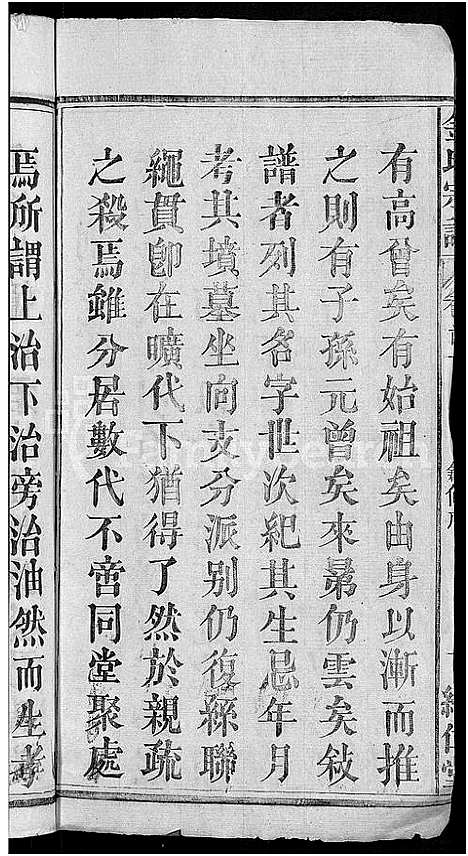 有高曾矣有始祖矣由身以漸而推
之則有子孫元曾矣來晜仍雲矣敍
譜者列其名字世次紀其生忌年月
考其墳墓坐向支分派别仍復絲聯
繩貫卽在曠代下猶得了然於親疏
之殺焉雖分居數代不啻同堂聚處
焉所謂上治下治旁治油然而生孝